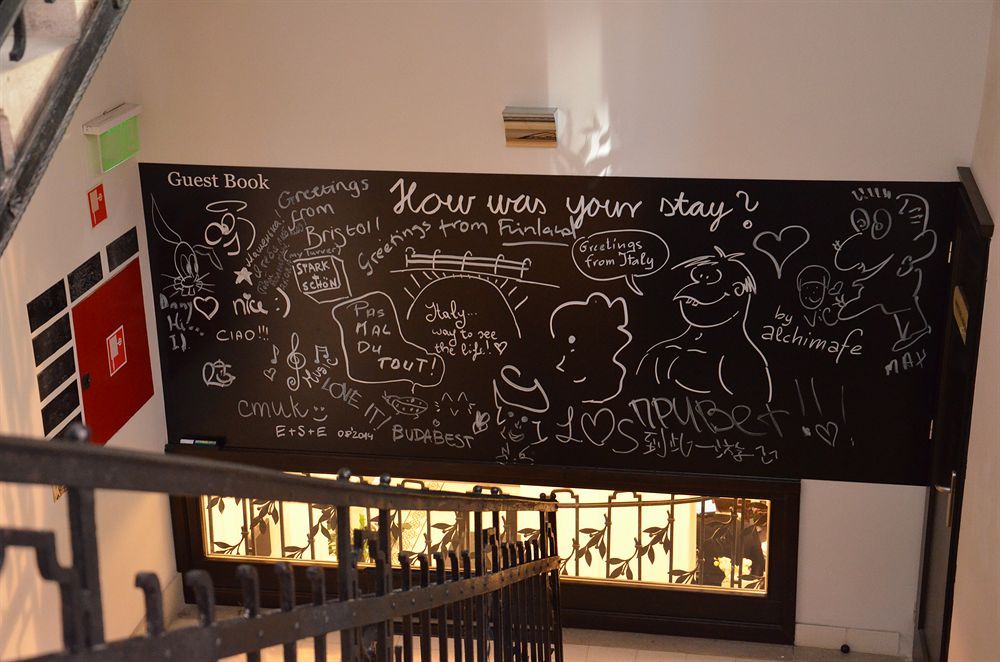 Guest Book
How was your stay?
Greetings
from
Bristol!
Greetings from Finland
Greetings
from Italy
STARK
SCHÖN
nice :)
CIAO!!!
PAS
MAL
DU
TOUT!
Italy...
way to see
the life!
LOVE IT!
cmuk
E+S+E 08.2014
BUDABEST
by
alchimafe
MAX
ПРИВЕТ !!!
到此一游